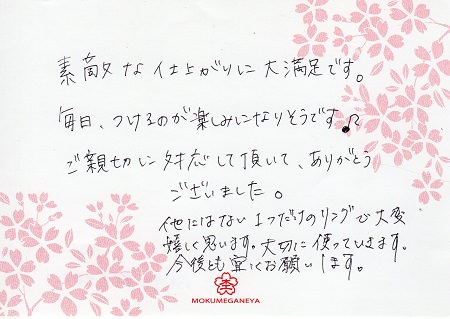 素敵な仕上がりに大満足です。
毎日、つけるのが楽しみになりそうです♪
ご親切に対応して頂いて、ありがとう
ございました。
他にはない1つだけのリングで大変
嬉しく思います。大切に使っていきます。
今後とも宜しくお願いします。
MOKUMEGANEYA